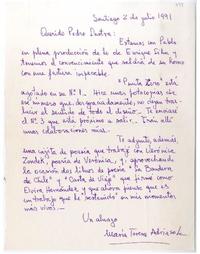 Santiago 2 de julio 1991
Querido Pedro Lastra:
Estamos con Pablo
en plena producción de lo de Enrique Lihn y
tenemos el convencimiento que saldrá de su horno
con una factura impecable.
"Punta Zero" está
agotado en su Nº 1. Hice unas fotocopias
de ese impreso que, desgraciadamente, no logran
lucir el sentido de todo el diseño. Te enviaré
el Nº 3 que está próximo a salir. Irán allí
unas colaboraciones mías.
Te adjunto, además,
una cajita de poesía que trabajé con Verónica
Zondek, poesía de Verónica, y, aprovechando
la ocasión dos libros de poesía "La Bandera
de Chile" y "Carta de Viaje" que firmé como
Elvira Hernández y que ahora pienso que es
un trabajo que he sostenido en mis momentos
más vivos.
Un abrazo
María Teresa Adriasola